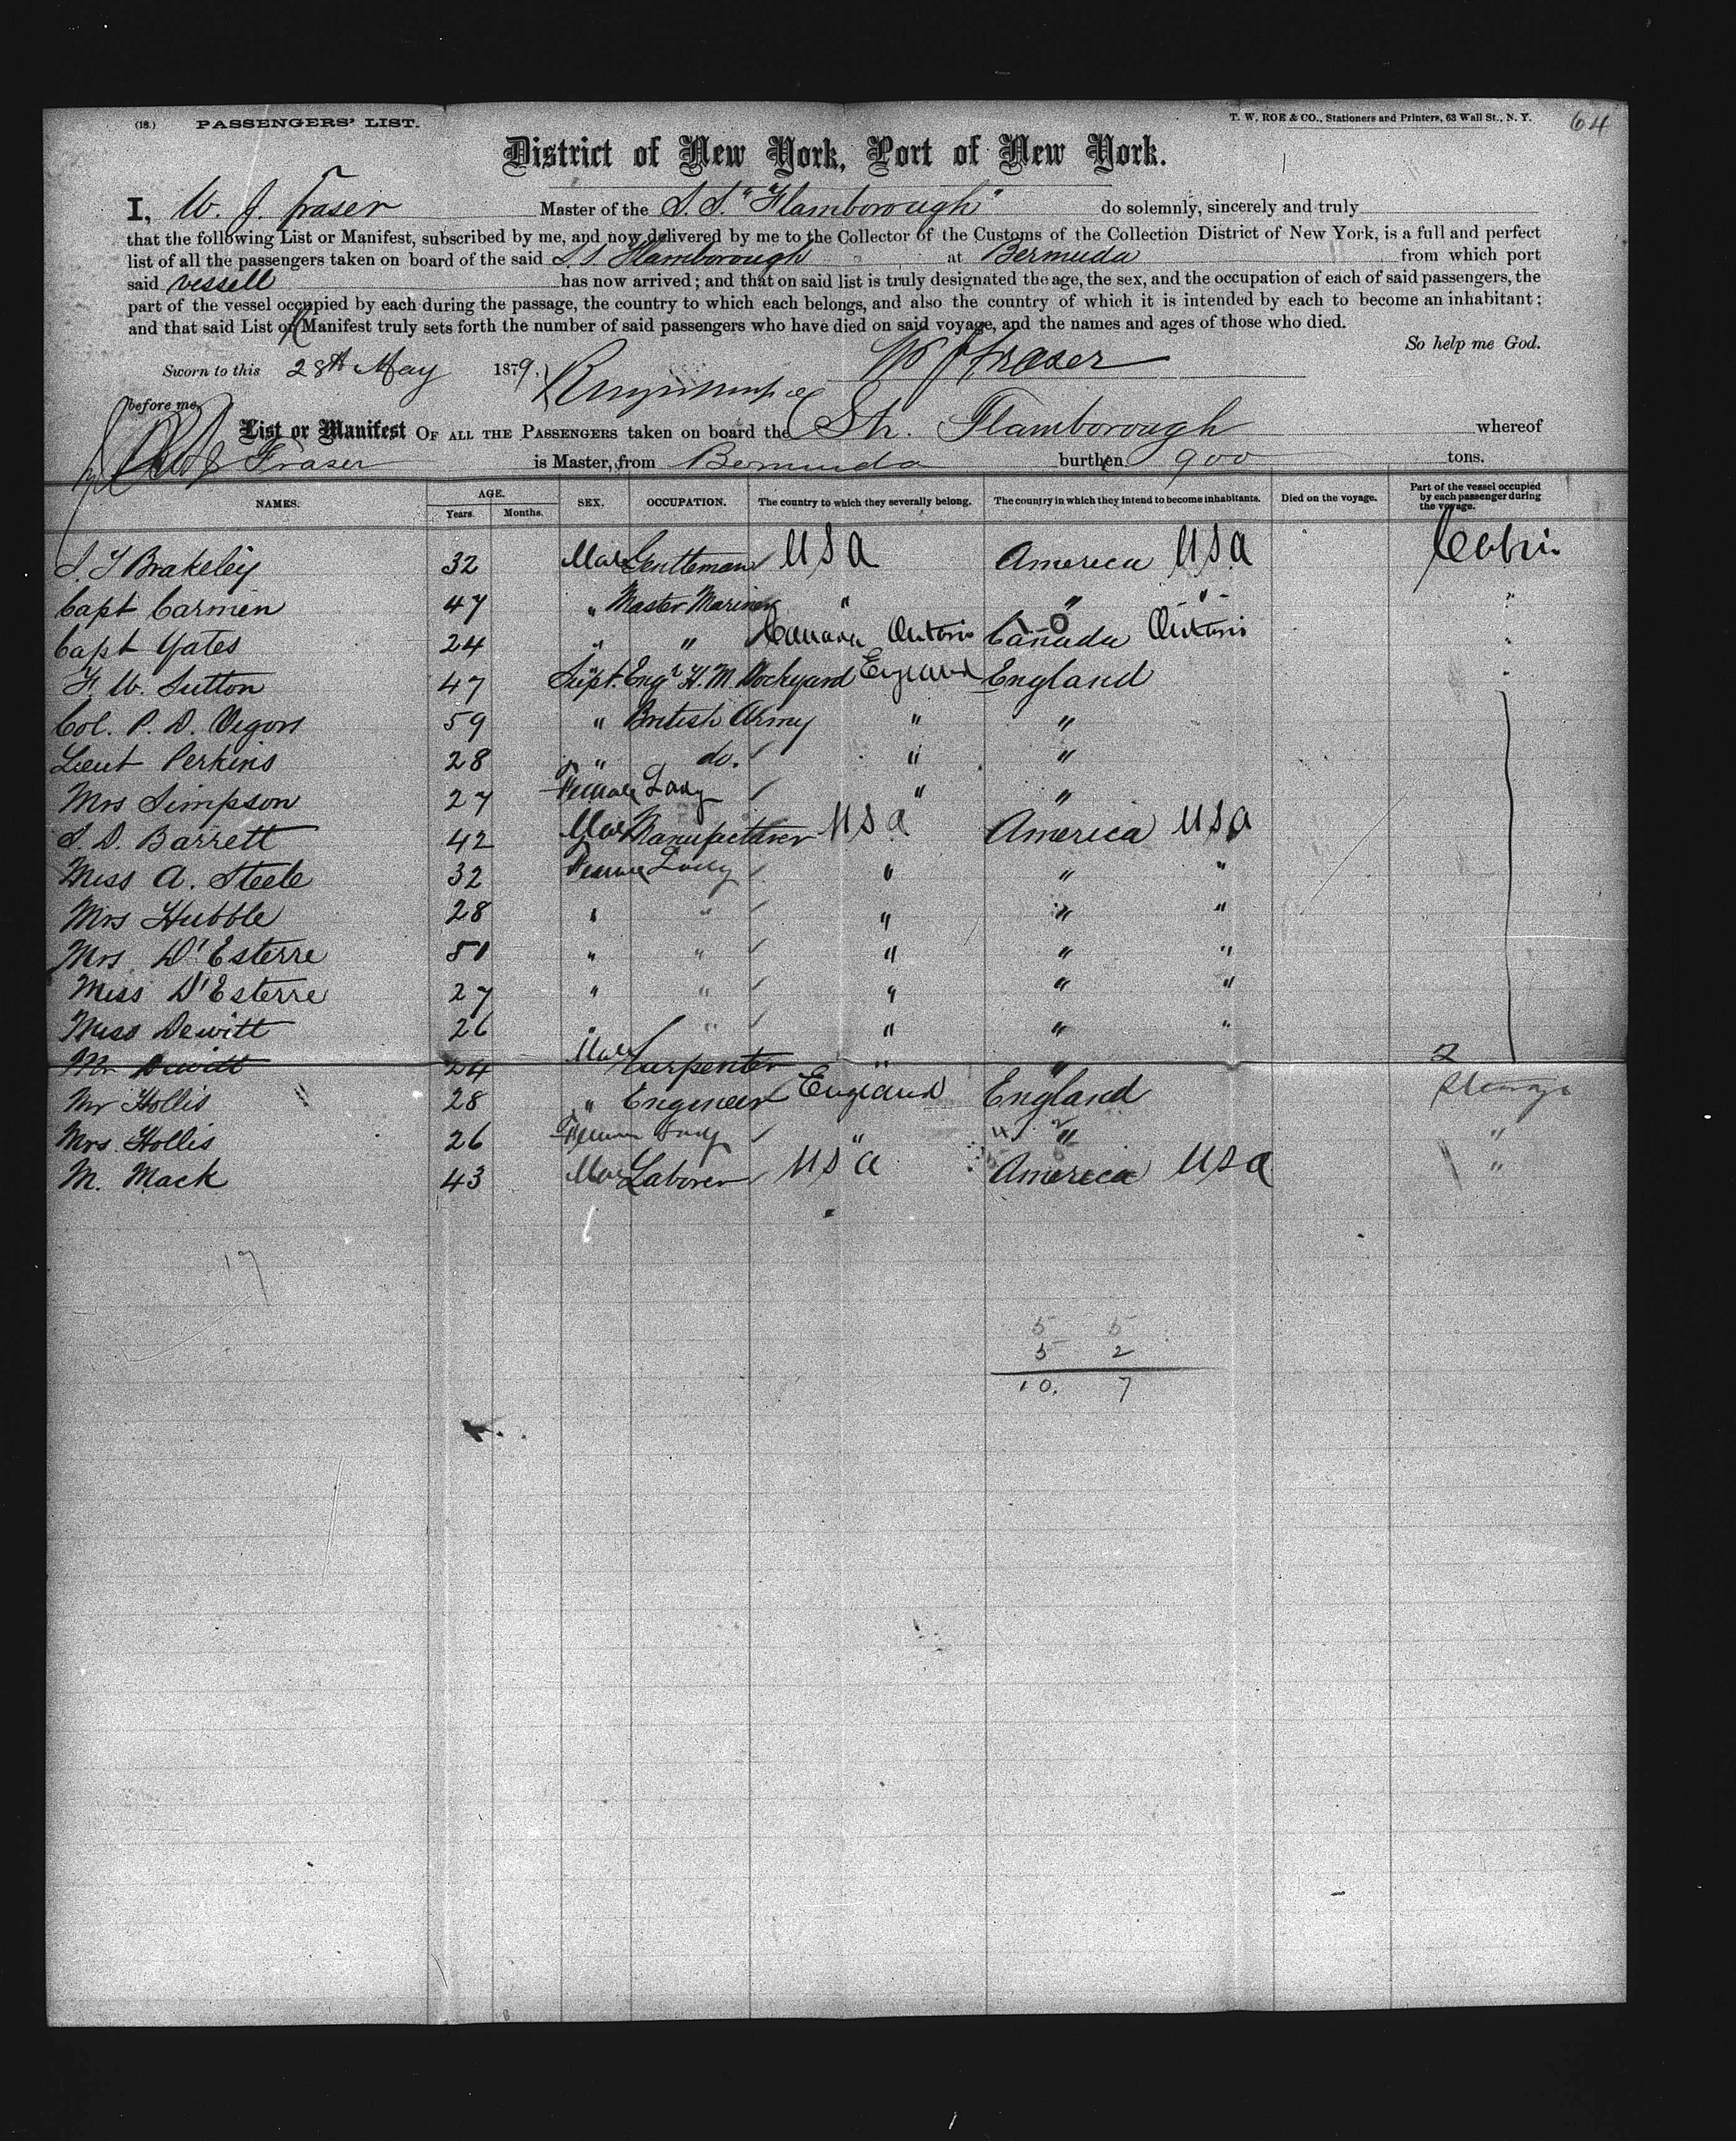 (18.) PASSENGERS' LIST. T. W. ROE & CO., Stationers and Printers, 63 Wall St., N. Y. 64
District of New York, Port of New York.
I, W. J. Fraser Master of the S.S. "Flamborough" do solemnly, sincerely and truly
that the following List or Manifest, subscribed by me, and now delivered by me to the Collector of the Customs of the Collection District of New York, is a full and perfect
list of all the passengers taken on board of the said S.S. Flamborough at Bermuda from which port
said vessell has now arrived; and that on said list is truly designated the age, the sex, and the occupation of each of said passengers, the
part of the vessel occupied by each during the passage, the country to which each belongs, and also the country of which it is intended by each to become an inhabitant;
and that said List or Manifest truly sets forth the number of said passengers who have died on said voyage, and the names and ages of those who died.
So help me God.
Sworn to this 28th May 1879. W J Fraser
before me,
List or Manifest OF ALL THE PASSENGERS taken on board the Str. Flamborough whereof
Fraser is Master, from Bermuda burthen 900 tons.
NAMES. AGE. Years. Months. SEX. OCCUPATION. The country to which they severally belong. The country in which they intend to become inhabitants. Died on the voyage. Part of the vessel occupied by each passenger during the voyage.
S. T Brakeley 32 Male Gentleman USA America USA Cabin
Capt Carmen 47 " Master Mariner " " "
Capt Yates 24 " " Canada Ontario Canada Ontario "
F. W. Sutton 47 Supt. Engr H.M. Dockyard England England "
Col. P. D. Vigors 59 " British Army " "
Lieut Perkins 28 " do. " "
Mrs Simpson 27 Female Lady " "
S. D. Barrett 42 Male Manufacturer USA America USA
Miss A. Steele 32 Female Lady " " "
Mrs Hubble 28 " " " " "
Mrs D'Esterre 51 " " " " "
Miss D'Esterre 27 " " " " "
Miss Dewitt 26 " " " " "
Mr Dewitt 24 Male Carpenter " " 2
Mr Hollis 28 " Engineer England England Steerage
Mrs. Hollis 26 Female Lady " " "
M. Mack 43 Male Laborer USA America USA "
17
5 5
5 2
10. 7